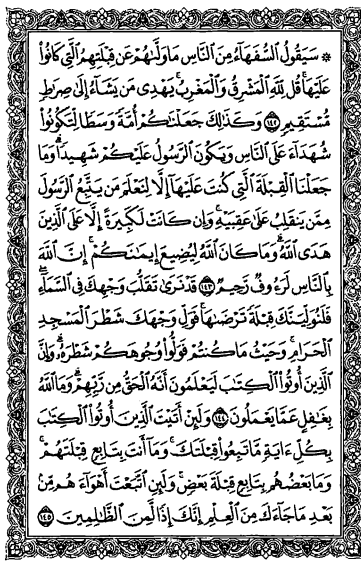 ۞ سَيَقُولُ ٱلسُّفَهَآءُ مِنَ ٱلنَّاسِ مَا وَلَّىٰهُمۡ عَن قِبۡلَتِهِمُ ٱلَّتِي كَانُواْ
عَلَيۡهَاۚ قُل لِّلَّهِ ٱلۡمَشۡرِقُ وَٱلۡمَغۡرِبُۚ يَهۡدِي مَن يَشَآءُ إِلَىٰ صِرَٰطٖ
مُّسۡتَقِيمٖ ١٤٢ وَكَذَٰلِكَ جَعَلۡنَٰكُمۡ أُمَّةٗ وَسَطٗا لِّتَكُونُواْ
شُهَدَآءَ عَلَى ٱلنَّاسِ وَيَكُونَ ٱلرَّسُولُ عَلَيۡكُمۡ شَهِيدٗاۗ وَمَا
جَعَلۡنَا ٱلۡقِبۡلَةَ ٱلَّتِي كُنتَ عَلَيۡهَآ إِلَّا لِنَعۡلَمَ مَن يَتَّبِعُ ٱلرَّسُولَ
مِمَّن يَنقَلِبُ عَلَىٰ عَقِبَيۡهِۚ وَإِن كَانَتۡ لَكَبِيرَةً إِلَّا عَلَى ٱلَّذِينَ
هَدَى ٱللَّهُۗ وَمَا كَانَ ٱللَّهُ لِيُضِيعَ إِيمَٰنَكُمۡۚ إِنَّ ٱللَّهَ
بِٱلنَّاسِ لَرَءُوفٞ رَّحِيمٞ ١٤٣ قَدۡ نَرَىٰ تَقَلُّبَ وَجۡهِكَ فِي ٱلسَّمَآءِۖ
فَلَنُوَلِّيَنَّكَ قِبۡلَةٗ تَرۡضَىٰهَاۚ فَوَلِّ وَجۡهَكَ شَطۡرَ ٱلۡمَسۡجِدِ
ٱلۡحَرَامِۚ وَحَيۡثُ مَا كُنتُمۡ فَوَلُّواْ وُجُوهَكُمۡ شَطۡرَهُۥۗ وَإِنَّ
ٱلَّذِينَ أُوتُواْ ٱلۡكِتَٰبَ لَيَعۡلَمُونَ أَنَّهُ ٱلۡحَقُّ مِن رَّبِّهِمۡۗ وَمَا ٱللَّهُ
بِغَٰفِلٍ عَمَّا يَعۡمَلُونَ ١٤٤ وَلَئِنۡ أَتَيۡتَ ٱلَّذِينَ أُوتُواْ ٱلۡكِتَٰبَ
بِكُلِّ ءَايَةٖ مَّا تَبِعُواْ قِبۡلَتَكَۚ وَمَآ أَنتَ بِتَابِعٖ قِبۡلَتَهُمۡۚ
وَمَا بَعۡضُهُم بِتَابِعٖ قِبۡلَةَ بَعۡضٖۚ وَلَئِنِ ٱتَّبَعۡتَ أَهۡوَآءَهُم مِّنۢ
بَعۡدِ مَا جَآءَكَ مِنَ ٱلۡعِلۡمِ إِنَّكَ إِذٗا لَّمِنَ ٱلظَّٰلِمِينَ ١٤٥